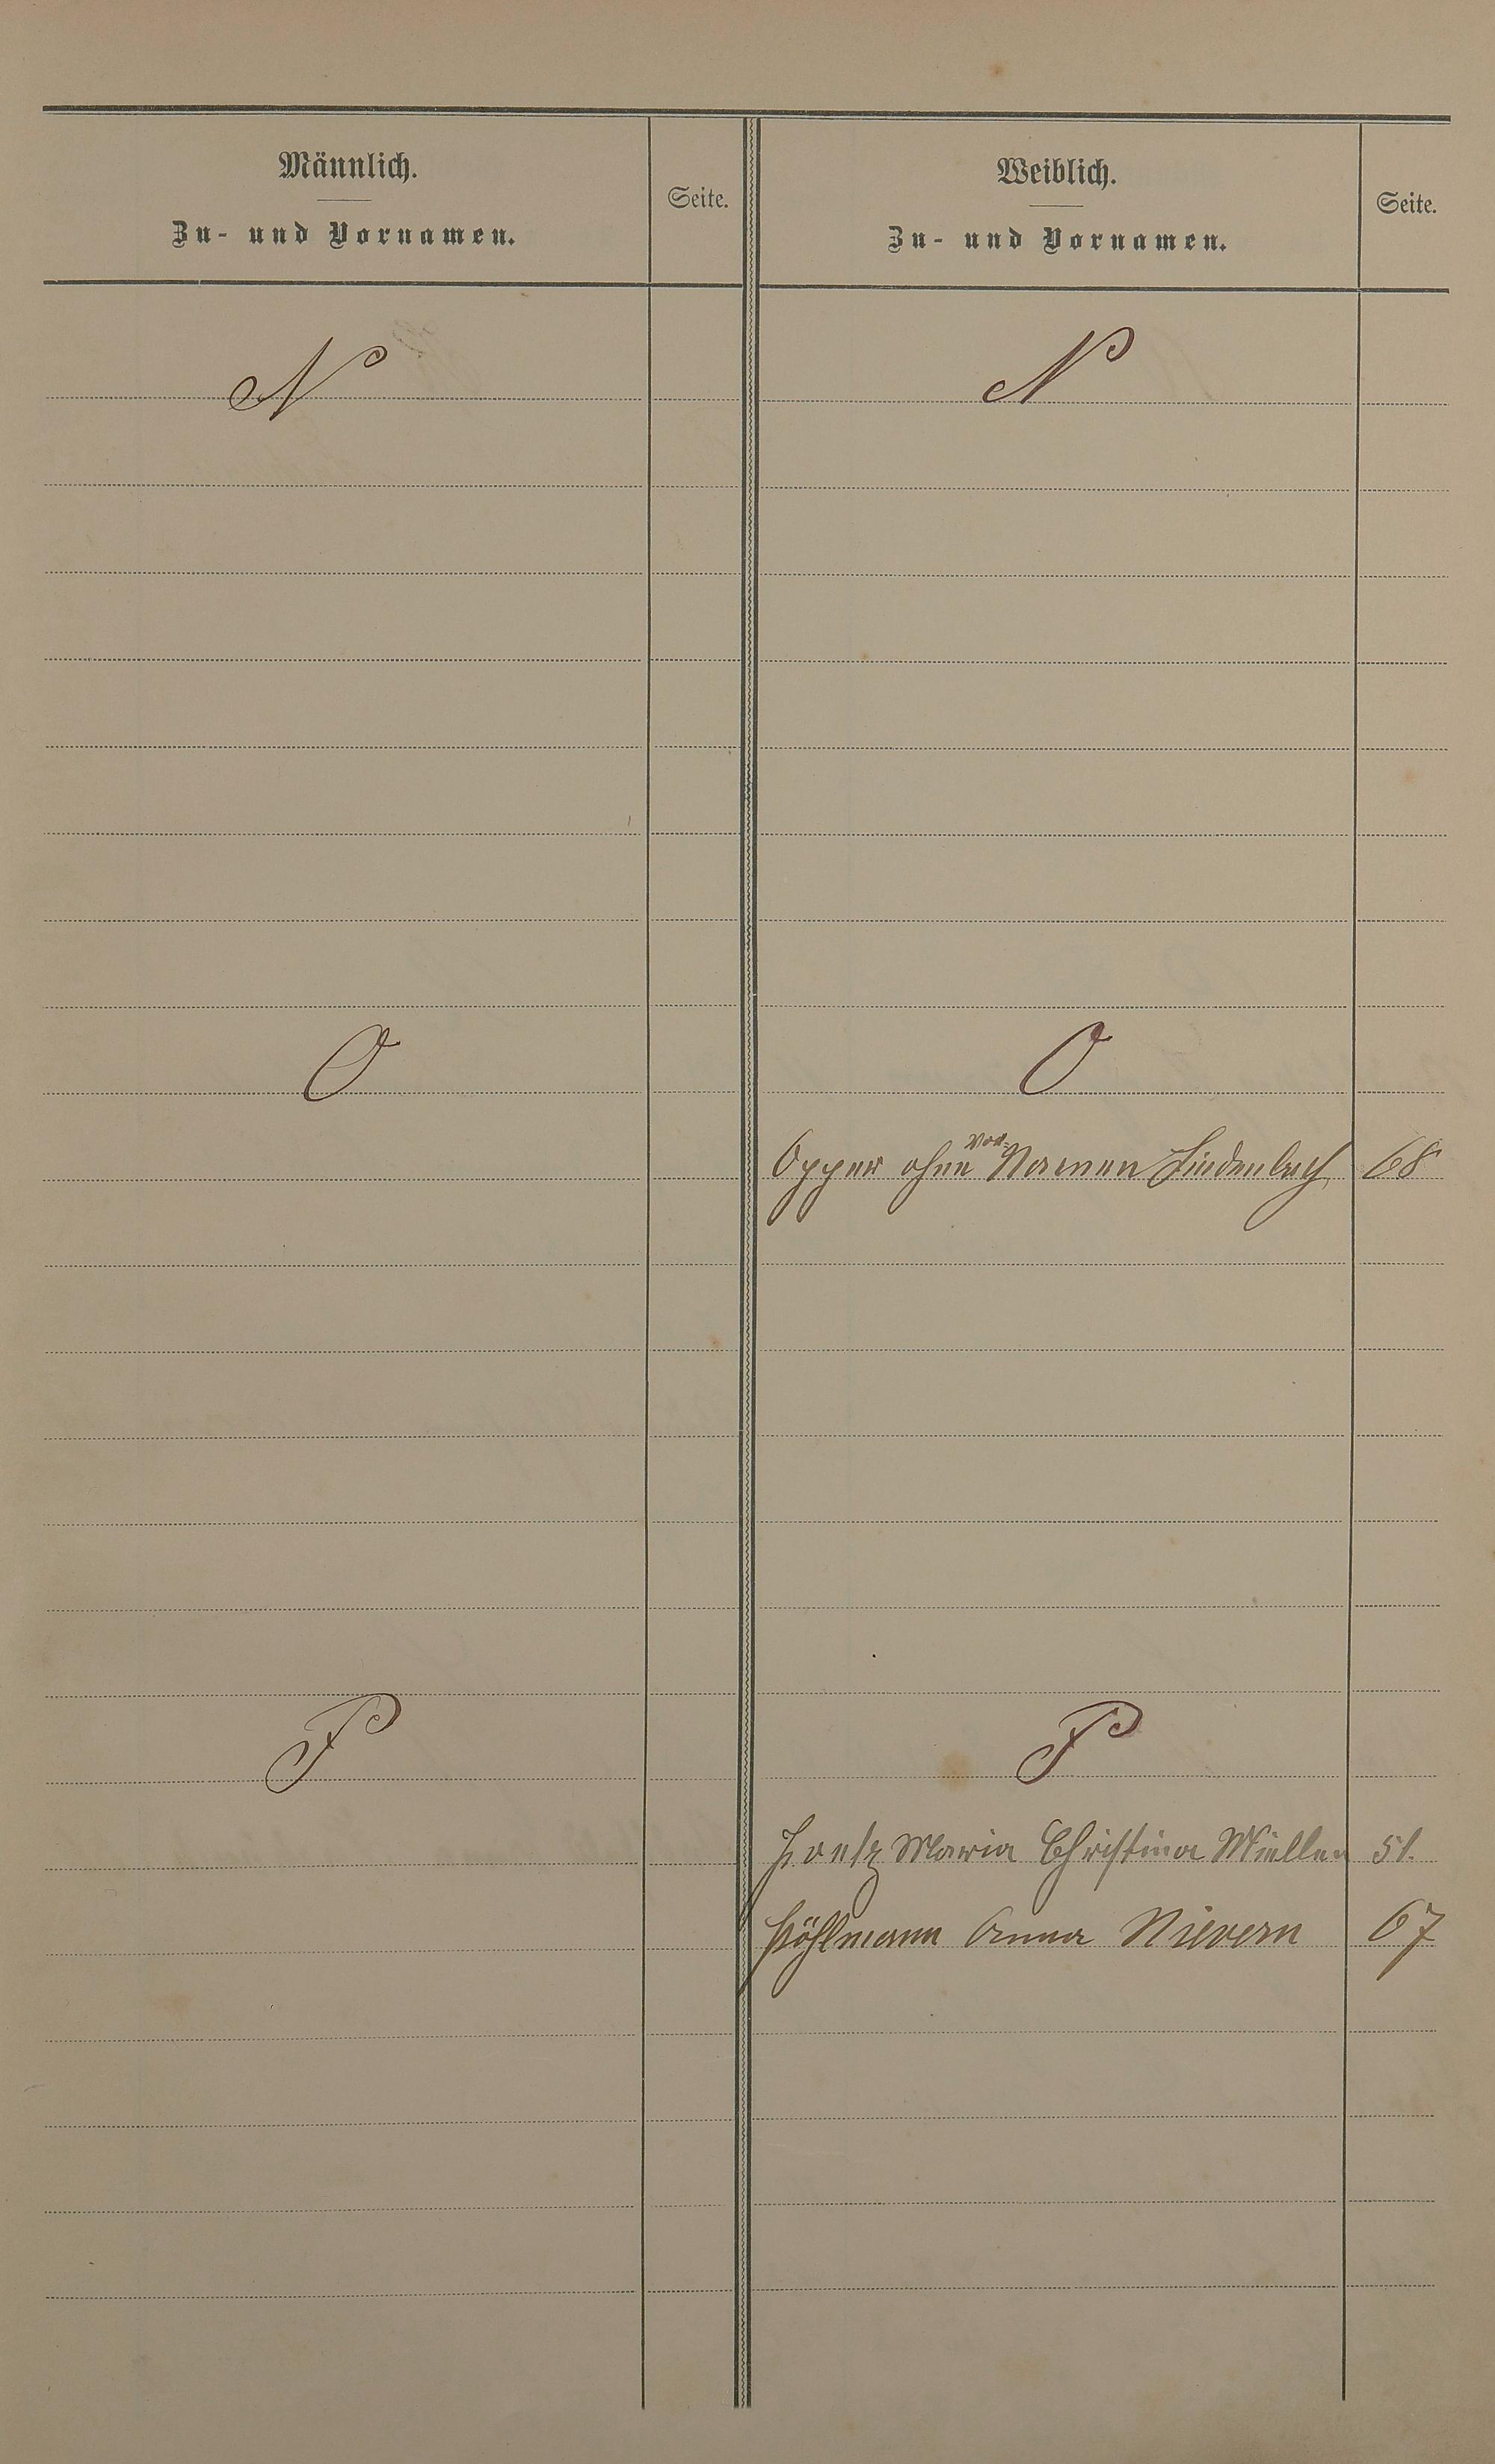 Männlich.
Zu- und Vornamen.
Seite.
Weiblich.
Zu- und Vornamen.
Seite.
N
N
O
O
Vor-
Opper ohne Namen Lindenbach 68
P
P
Maria Christina Müllen 51.
Pöhlmann Anna Nievern 67